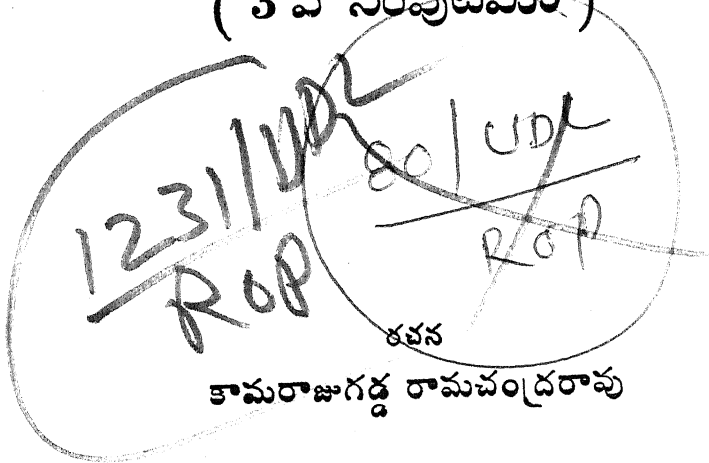 ( 3 వ సంపుటము )
1231/UDL
ROP
80/UDL
ROP
రచన
కామరాజుగడ్డ రామచంద్రరావు